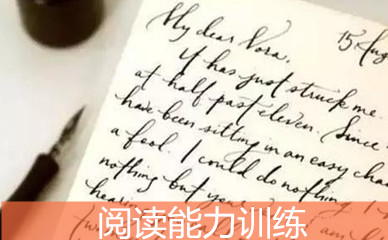 My dear Nora,
15 Aug
It has just struck me.
at half past eleven. Since
have been sitting in an easy chai
a fool. I could do nothing
nothing but your
hear
阅读能力训练